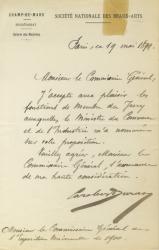 CHAMP-DE-MARS
SECRÉTARIAT
Galerie des Machines
SOCIÉTÉ NATIONALE DES BEAUX-ARTS
Paris, ce 19 mai 189
Monsieur le Commissaire Général,
J'accepte avec plaisir les
fonctions de Membre du Jury
auxquelles le Ministre du Commerce
et de l'Industrie m'a nommé
sur votre proposition.
Veuillez agréer, Monsieur le
Commissaire Général, l'assurance
de ma haute considération.
Carolus Duran
Monsieur le Commissaire Général de
l'Exposition Universelle de 1900